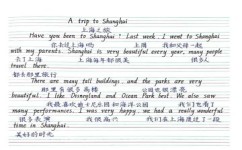 A trip to Shanghai
上海之旅
Have you been to Shanghai? Last week I went to Shanghai
你去过上海吗 上周 我和父母一起
with my parents. Shanghai is very beautiful every year, many people
去了上海 上海每年都很美 很多人
travel there.
都去那里旅行
There are many tall buildings. and the parks are very
那里有很多高楼 公园也很漂亮
beautiful. I like Disneyland and Ocean Park best. We also saw
我最喜欢迪士尼乐园和海洋公园 我们也看了
many performances. I was very happy. we had a really wonderful
很多表演 我很高兴 我们在上海度过了一段
time in Shanghai.
美好的时光